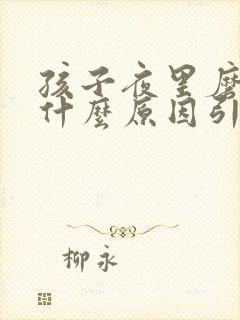 孩子夜里磨
什麼原因引
柳永